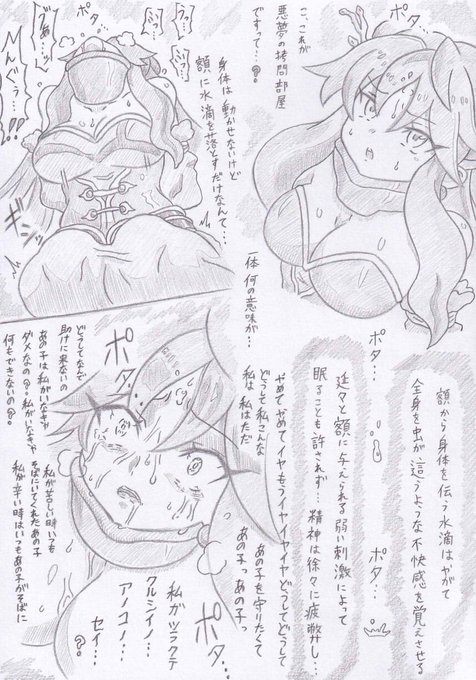 こ、これが
悪夢の拷問部屋
ですって…?
ポタ…
ポタ…
身体は動かせないけど
額に水滴を落とすだけなんて…
一体何の意味が…
んぐぅ…!!
ギシッ
額から身体を伝う水滴はやがて
全身を虫が這うような不快感を覚えさせる
ポタ…
ポタ…
延々と額に与えられる弱い刺激によって
眠ることも許されず…精神は徐々に疲弊し…
やめてやめてイヤもうイヤイヤイヤどうしてどうして
どうして私こんな
私はただ
あの子を守りたくて
あの子っあの子っ
ポタ…
どうしてなんで
助けに来ないの
あの子は私がいなきゃ
ダメなの?私がいなきゃ
何もできないの?
私が苦しい時いつも
そばにいてくれたあの子
私が辛い時はいつもあの子がそばに
ポタ…
私がツラクテ
クルシイノ…
アノコノ…
セイ…